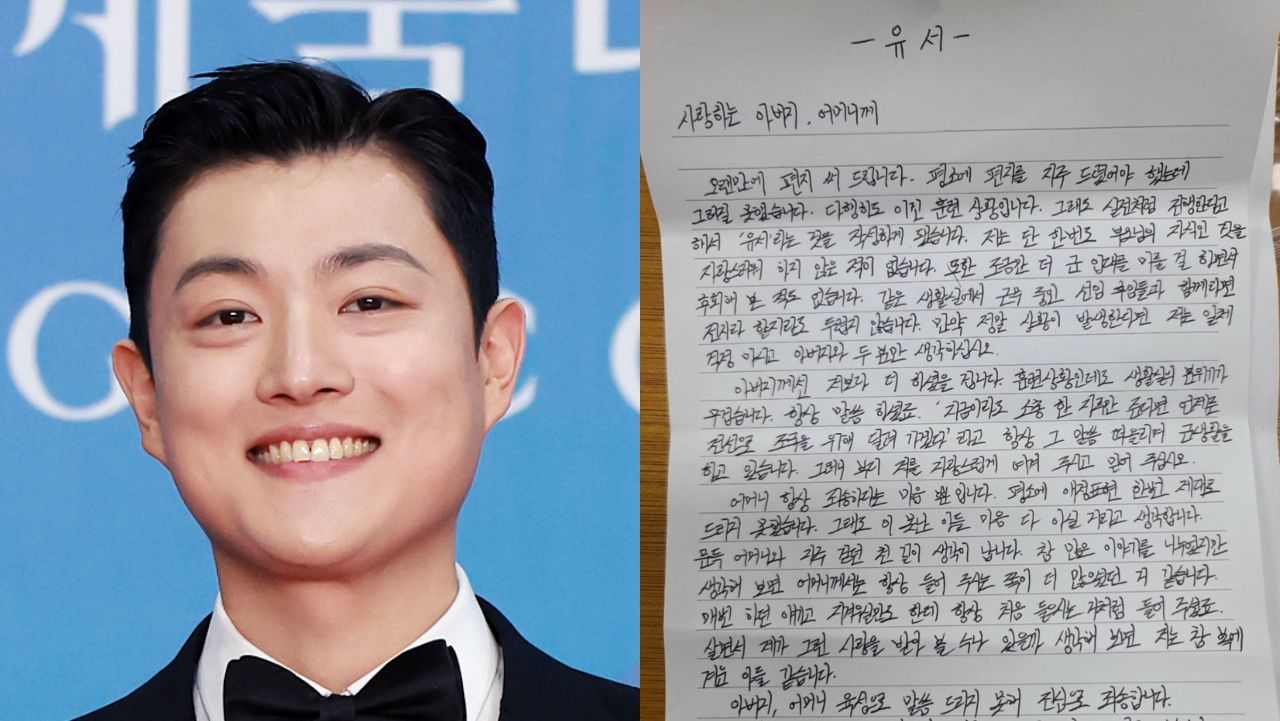 - 유 서 -
사랑하는 아버지, 어머니께
오랜만에 편지 써 드립니다. 평소에 편지를 자주 드렸어야 했는데
그러질 못했습니다. 다행히도 이건 훈련 상황입니다. 그래도 실전처럼 진행한다고
해서 '유서'라는 것을 작성하게 됐습니다. 저는 단 한번도 부모님의 자식인 것을
자랑스러워 하지 않은 적이 없습니다. 또한 조금만 더 군 입대를 미룰 걸 하면서
후회해 본 적도 없습니다. 같은 생활실에서 근무 중인 선임 후임들과 함께라면
전시라 할지라도 두렵지 않습니다. 만약 정말 상황이 발생한다면 저는 일체
걱정 마시고 아버지와 두 분만 생각하십시오.
아버지께선 저보다 더 하셨을 겁니다. 훈련상황인데도 생활실의 분위기가
무겁습니다. 항상 말씀 하셨죠. '지금이라도 소총 한 자루만 주다면 언제든
전선으로 조국을 위해 달려 가겠다' 라고 항상 그 말씀 떠올리며 군생활을
하고 있습니다. 그러니 부디 저를 자랑스럽게 여겨 주시고 믿어 주십시오.
어머니 항상 죄송하다는 마음 뿐입니다. 평소에 애정표현 한번 제대로
드리지 못했습니다. 그래도 이 못난 아들 마음 다 아실 거라고 생각합니다.
문득 어머니와 자주 걷던 천 길이 생각이 납니다. 참 많은 이야기를 나누었지만
생각해 보면 어머니께서는 항상 들어 주시는 쪽이 더 많았던 거 같습니다.
매번 하던 얘기고 지겨우실만도 한데 항상 처음 들으시는 것처럼 들어 주셨죠.
살면서 제가 그런 사랑을 받아 볼 수나 있을까 생각해 보면 저는 참 복에
겨운 아들 같습니다.
아버지, 어머니 육성으로 말씀 드리지 못해 진심으로 죄송합니다.